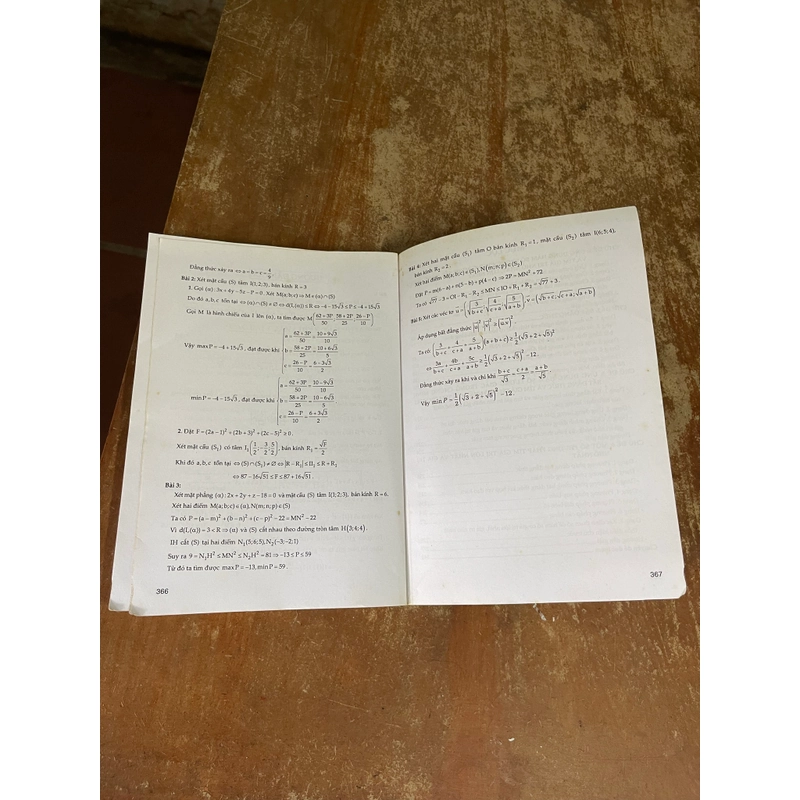 Đẳng thức xảy ra ⇔ a = b = c = 4/9.
Bài 2: Xét mặt cầu (S) tâm I(1;2;3), bán kính R = 3
1. Gọi (α): 3x + 4y − 5z − P = 0. Xét M(a;b;c) ⇒ M ∈ (α) ∩ (S)
Do đó a, b, c tồn tại ⇔ (α) ∩ (S) ≠ ∅ ⇔ d(I,(α)) ≤ R ⇔ −4 − 15√3 ≤ P ≤ −4 + 15√3
Gọi M là hình chiếu của I lên (α), ta tìm được M((62+3P)/50; (58+2P)/25; (26−P)/10)
Vậy max P = −4 + 15√3, đạt được khi { a = (62+3P)/50 = (10+9√3)/10
b = (58+2P)/25 = (10+6√3)/5
c = (26−P)/10 = (6−3√3)/2
min P = −4 − 15√3, đạt được khi { a = (62+3P)/50 = (10−9√3)/10
b = (58+2P)/25 = (10−6√3)/5
c = (26−P)/10 = (6+3√3)/2
2. Đặt F = (2a−1)² + (2b+3)² + (2c−5)² ≥ 0.
Xét mặt cầu (S₁) có tâm I₁(1/2; −3/2; 5/2), bán kính R₁ = √F/2
Khi đó a, b, c tồn tại ⇔ (S) ∩ (S₁) ≠ ∅ ⇔ |R − R₁| ≤ II₁ ≤ R + R₁
⇔ 87 − 16√51 ≤ F ≤ 87 + 16√51.
Bài 3:
Xét mặt phẳng (α): 2x + 2y + z − 18 = 0 và mặt cầu (S) tâm I(1;2;3), bán kính R = 6.
Xét hai điểm M(a;b;c) ∈ (α), N(m;n;p) ∈ (S)
Ta có P = (a−m)² + (b−n)² + (c−p)² − 22 = MN² − 22
Vì d(I,(α)) = 3 < R ⇒ (α) và (S) cắt nhau theo đường tròn tâm H(3;4;4).
IH cắt (S) tại hai điểm N₁(5;6;5), N₂(−3;−2;1)
Suy ra 9 = N₁H² ≤ MN² ≤ N₂H² = 81 ⇒ −13 ≤ P ≤ 59
Từ đó ta tìm được max P = −13, min P = 59.
366
Bài 4: Xét hai mặt cầu (S₁) tâm O bán kính R₁ = 1, mặt cầu (S₂) tâm I(6;5;4),
bán kính R₂ = 2.
Xét hai điểm M(a;b;c) ∈ (S₁), N(m;n;p) ∈ (S₂)
Đặt P = m(6−a) + n(5−b) + p(4−c) ⇒ 2P = MN² = 72.
Ta có √77 − 3 = OI − R₁ − R₂ ≤ MN ≤ IO + R₁ + R₂ = √77 + 3.
Bài 5: Xét các véc tơ u = (√(3/(b+c)); √(4/(c+a)); √(5/(a+b))), v = (√(b+c); √(c+a); √(a+b))
Áp dụng bất đẳng thức |u|².|v|² ≥ (u.v)²
Ta có (3/(b+c) + 4/(c+a) + 5/(a+b))(a+b+c) ≥ 1/2(√3 + 2 + √5)²
⇔ 3a/(b+c) + 4b/(c+a) + 5c/(a+b) ≥ 1/2(√3 + 2 + √5)² − 12.
Đẳng thức xảy ra khi và chỉ khi (b+c)/√3 = (c+a)/2 = (a+b)/√5.
Vậy min P = 1/2(√3 + 2 + √5)² − 12.
367